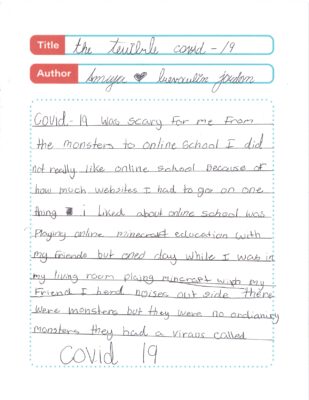 Title the terrible covid-19
Author
Covid-19 was scary for me From
the monsters to online school I did
not really like online school because of
how much websites I had to go on one
thing i liked about online school was
Playing online minecraft education with
my friends but oned day while I was in
my living room plaing mincraft with my
Friend I herd noises out side there
were monsters but they were no ordianary
monsters they had a viraus called
COVID 19